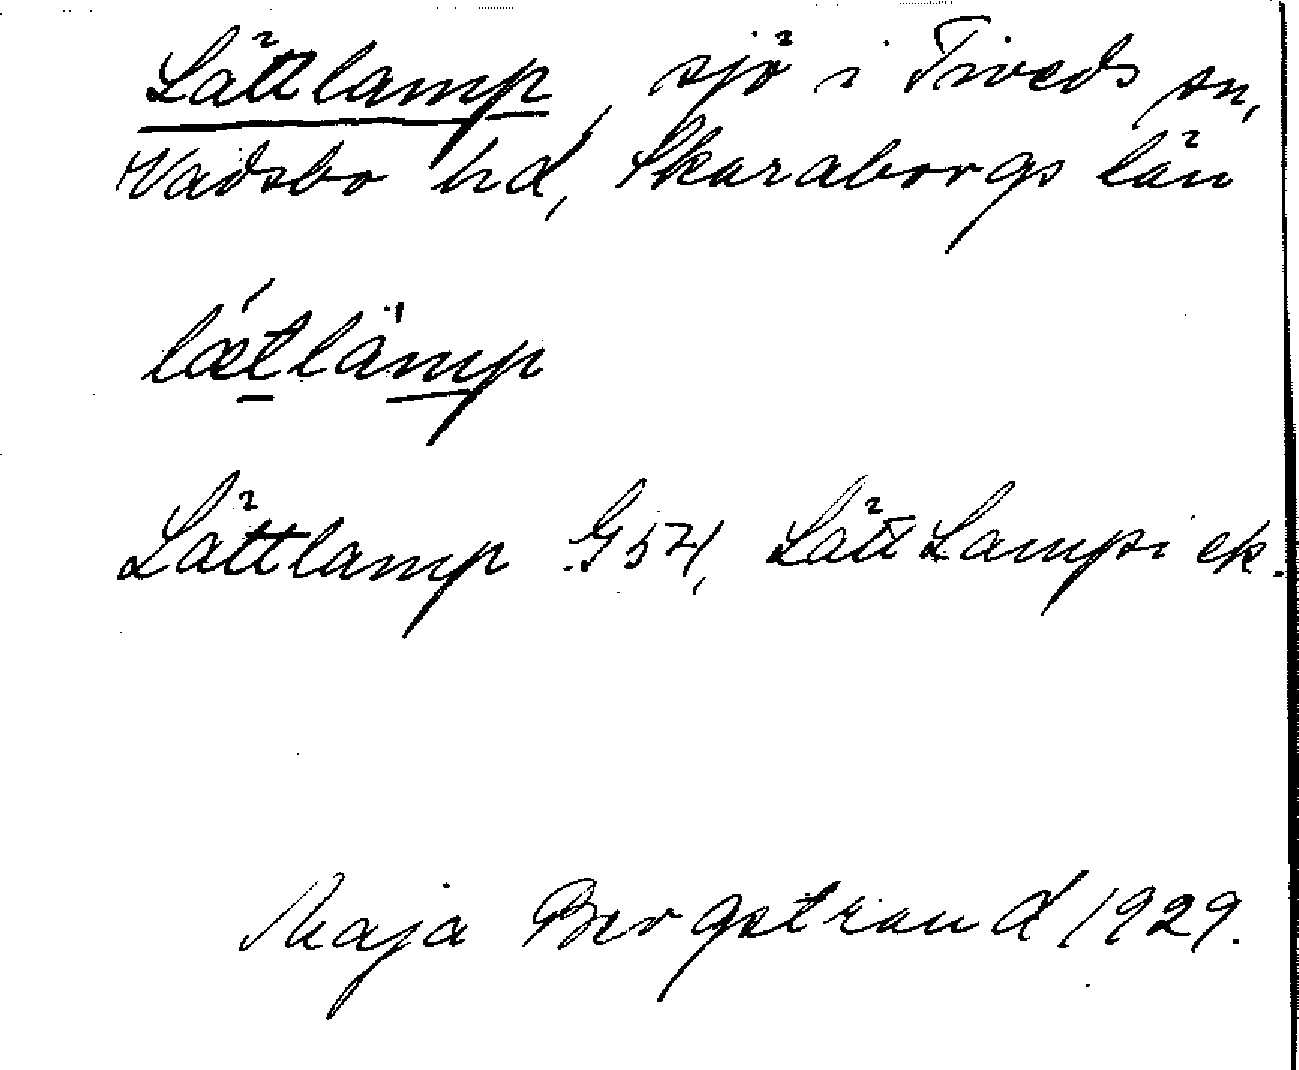 Lättlamp, sjö i Tiveds sn,
Vadsbo hd, Skaraborgs län
lǽtlämp
Lättlamp G 54, Lätt Lampi ek.
Maja Bergstrand 1929.